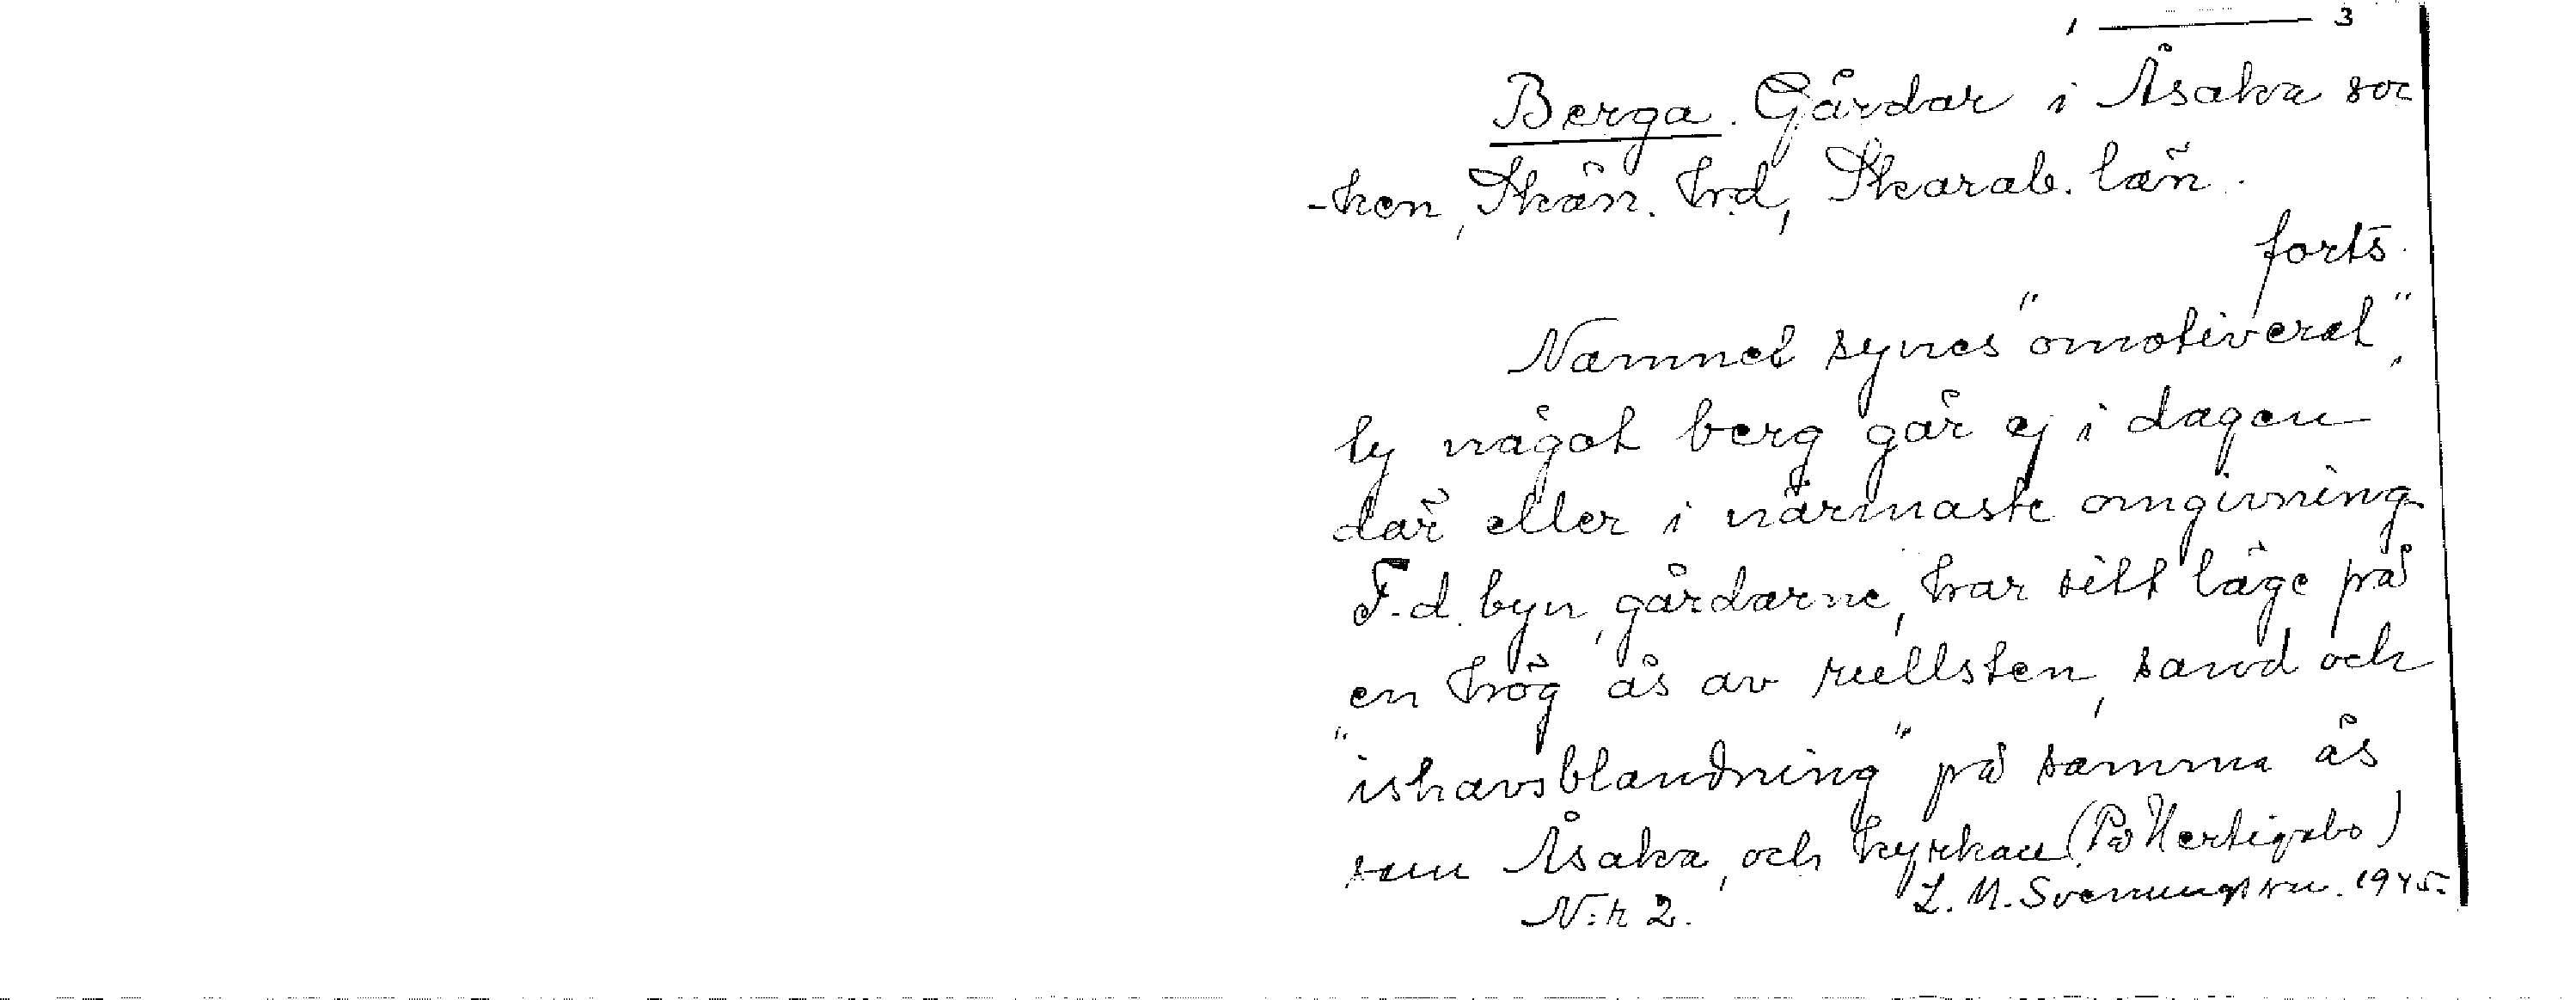 3
Berga. Gårdar i Åsaka soc
-ken, Skån. hd, Skarab. län.
forts.
Namnet synes "omotiverat",
ty något berg går ej i dagen
där eller i närmaste omgivning.
F.d. byn, gårdarne, har sitt läge på
en hög ås av rullsten, sand och
"ishavsblandning" på samma ås
som Åsaka, och kyrkan (På Hertigabo)
N:r 2. L. M. Svenungsson. 1945.